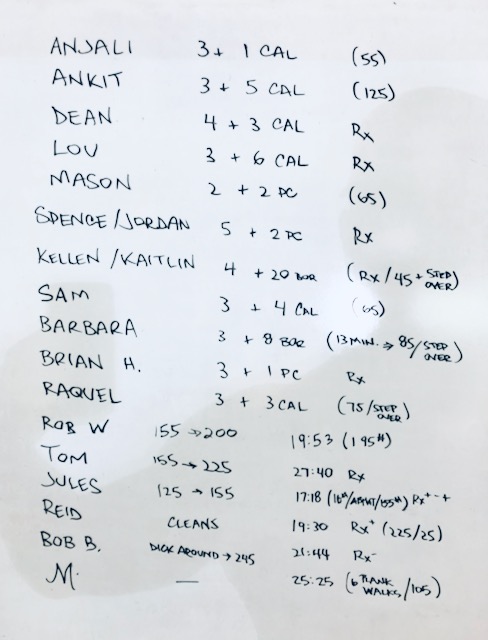 ANJALI 3 + 1 CAL (55)
ANKIT 3 + 5 CAL (125)
DEAN 4 + 3 CAL Rx
LOU 3 + 6 CAL Rx
MASON 2 + 2 PC (65)
SPENCE/JORDAN 5 + 2 PC Rx
KELLEN/KAITLIN 4 + 20 BOR (Rx/45 + STEP OVER)
SAM 3 + 4 CAL (65)
BARBARA 3 + 8 BOR (13 MIN. → 85/STEP OVER)
BRIAN H. 3 + 1 PC Rx
RAQUEL 3 + 3 CAL (75/STEP OVER)
ROB W 155 → 200 19:53 (195#)
TOM 155 → 225 27:40 Rx
JULES 125 → 155 17:18 Rx+
REID CLEANS 19:30 Rx+ (225/25)
BOB B. DICK AROUND → 245 21:44 Rx-
M. — 25:25 (6 PLANK WALKS/105)